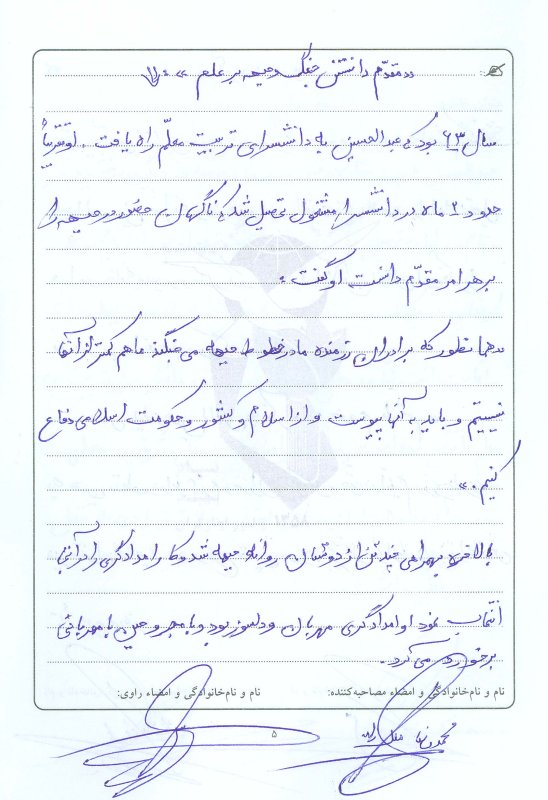 «مقدّم دانستن جنگ و جبهه بر علم»
سال ۶۳ بود که عبدالحسین به دانشسرای تربیت معلّم راه یافت. او تقریباً
حدود ۲ ماه در دانشسرا مشغول تحصیل شد که ناگهان حضور در جبهه را
بر هر امر مقدّم دانست او گفت:
«همانطور که برادران رزمنده ما در خطوط جبهه می‌جنگند ما هم کمتر از آنها
نیستیم و باید به آنها پیوست و از اسلام و کشور و حکومت اسلامی دفاع
کنیم.»
بالاخره بهمراهی چند تن از دوستان روانه جبهه شد و کار امدادگری را در آنجا
انتخاب نمود او امدادگری مهربان و دلسوز بود و با مجروحین با مهربانی
برخورد می‌کرد.
نام و نام‌خانوادگی و امضاء مصاحبه‌کننده: نام و نام‌خانوادگی و امضاء راوی:
محمدرضا
۵
۱۳۵۸